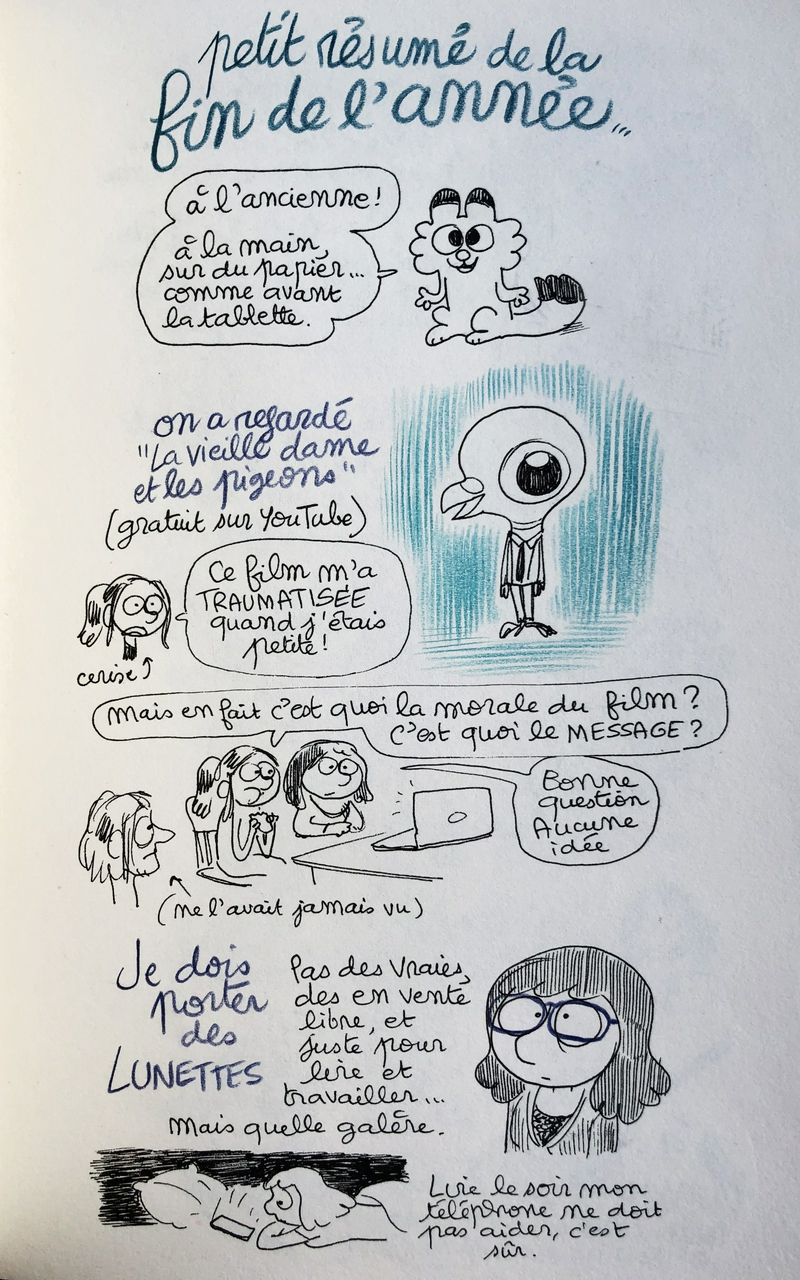 petit résumé de la
fin de l'année...
à l'ancienne!
à la main,
sur du papier...
comme avant
la tablette.
on a regardé
"La vieille dame
et les pigeons"
(gratuit sur YouTube)
Ce film m'a
TRAUMATISÉE
quand j'étais
petite!
cerise
Mais en fait c'est quoi la morale du film?
C'est quoi le MESSAGE?
Bonne
question
Aucune
idée
(ne l'avait jamais vu)
Je dois
porter
des
LUNETTES
Pas des vraies,
des en vente
libre, et
juste pour
lire et
travailler...
Mais quelle galère.
Lire le soir mon
téléphone ne doit
pas aider, c'est
sûr.